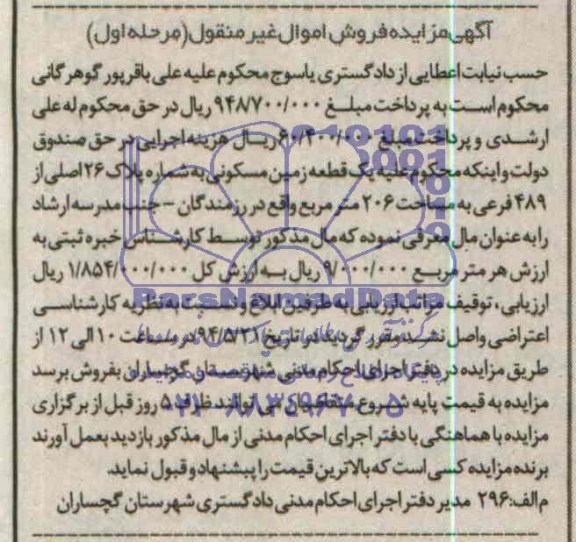 آگهی مزایده فروش اموال غیر منقول (مرحله اول)
حسب نیابت اعطایی از دادگستری یاسوج محکوم علیه علی باقرپور گوهرگانی
محکوم است به پرداخت مبلغ ۹۴۸/۷۰۰/۰۰۰ ریال در حق محکوم له علی
ارشدی و پرداخت مبلغ ۶۰/۴۰۰/۰۰۰ ریال هزینه اجرایی در حق صندوق
دولت و اینکه محکوم علیه یک قطعه زمین مسکونی به شماره پلاک ۲۶ اصلی از
۴۸۹ فرعی به مساحت ۲۰۶ متر مربع واقع در رزمندگان – جنب مدرسه ارشاد
را به عنوان مال معرفی نموده که مال مذکور توسط کارشناس خبره ثبتی به
ارزش هر متر مربع ۹/۰۰۰/۰۰۰ ریال به ارزش کل ۱/۸۵۴/۰۰۰/۰۰۰ ریال
ارزیابی، توقیف مراتب ارزیابی به طرفین ابلاغ و نسبت به نظریه کارشناسی
اعتراضی واصل نشد مقرر گردید در تاریخ ۹۴/۵/۳۱ در ساعت ۱۰ الی ۱۲ از
طریق مزایده در دفتر اجرای احکام مدنی شهرستان گچساران بفروش برسد
مزایده به قیمت پایه شروع متقاضیان می توانند ظرف ۵ روز قبل از برگزاری
مزایده با هماهنگی با دفتر اجرای احکام مدنی از مال مذکور بازدید بعمل آورند
برنده مزایده کسی است که بالاترین قیمت را پیشنهاد و قبول نماید.
م الف: ۲۹۶ مدیر دفتر اجرای احکام مدنی دادگستری شهرستان گچساران
ParsNamadData